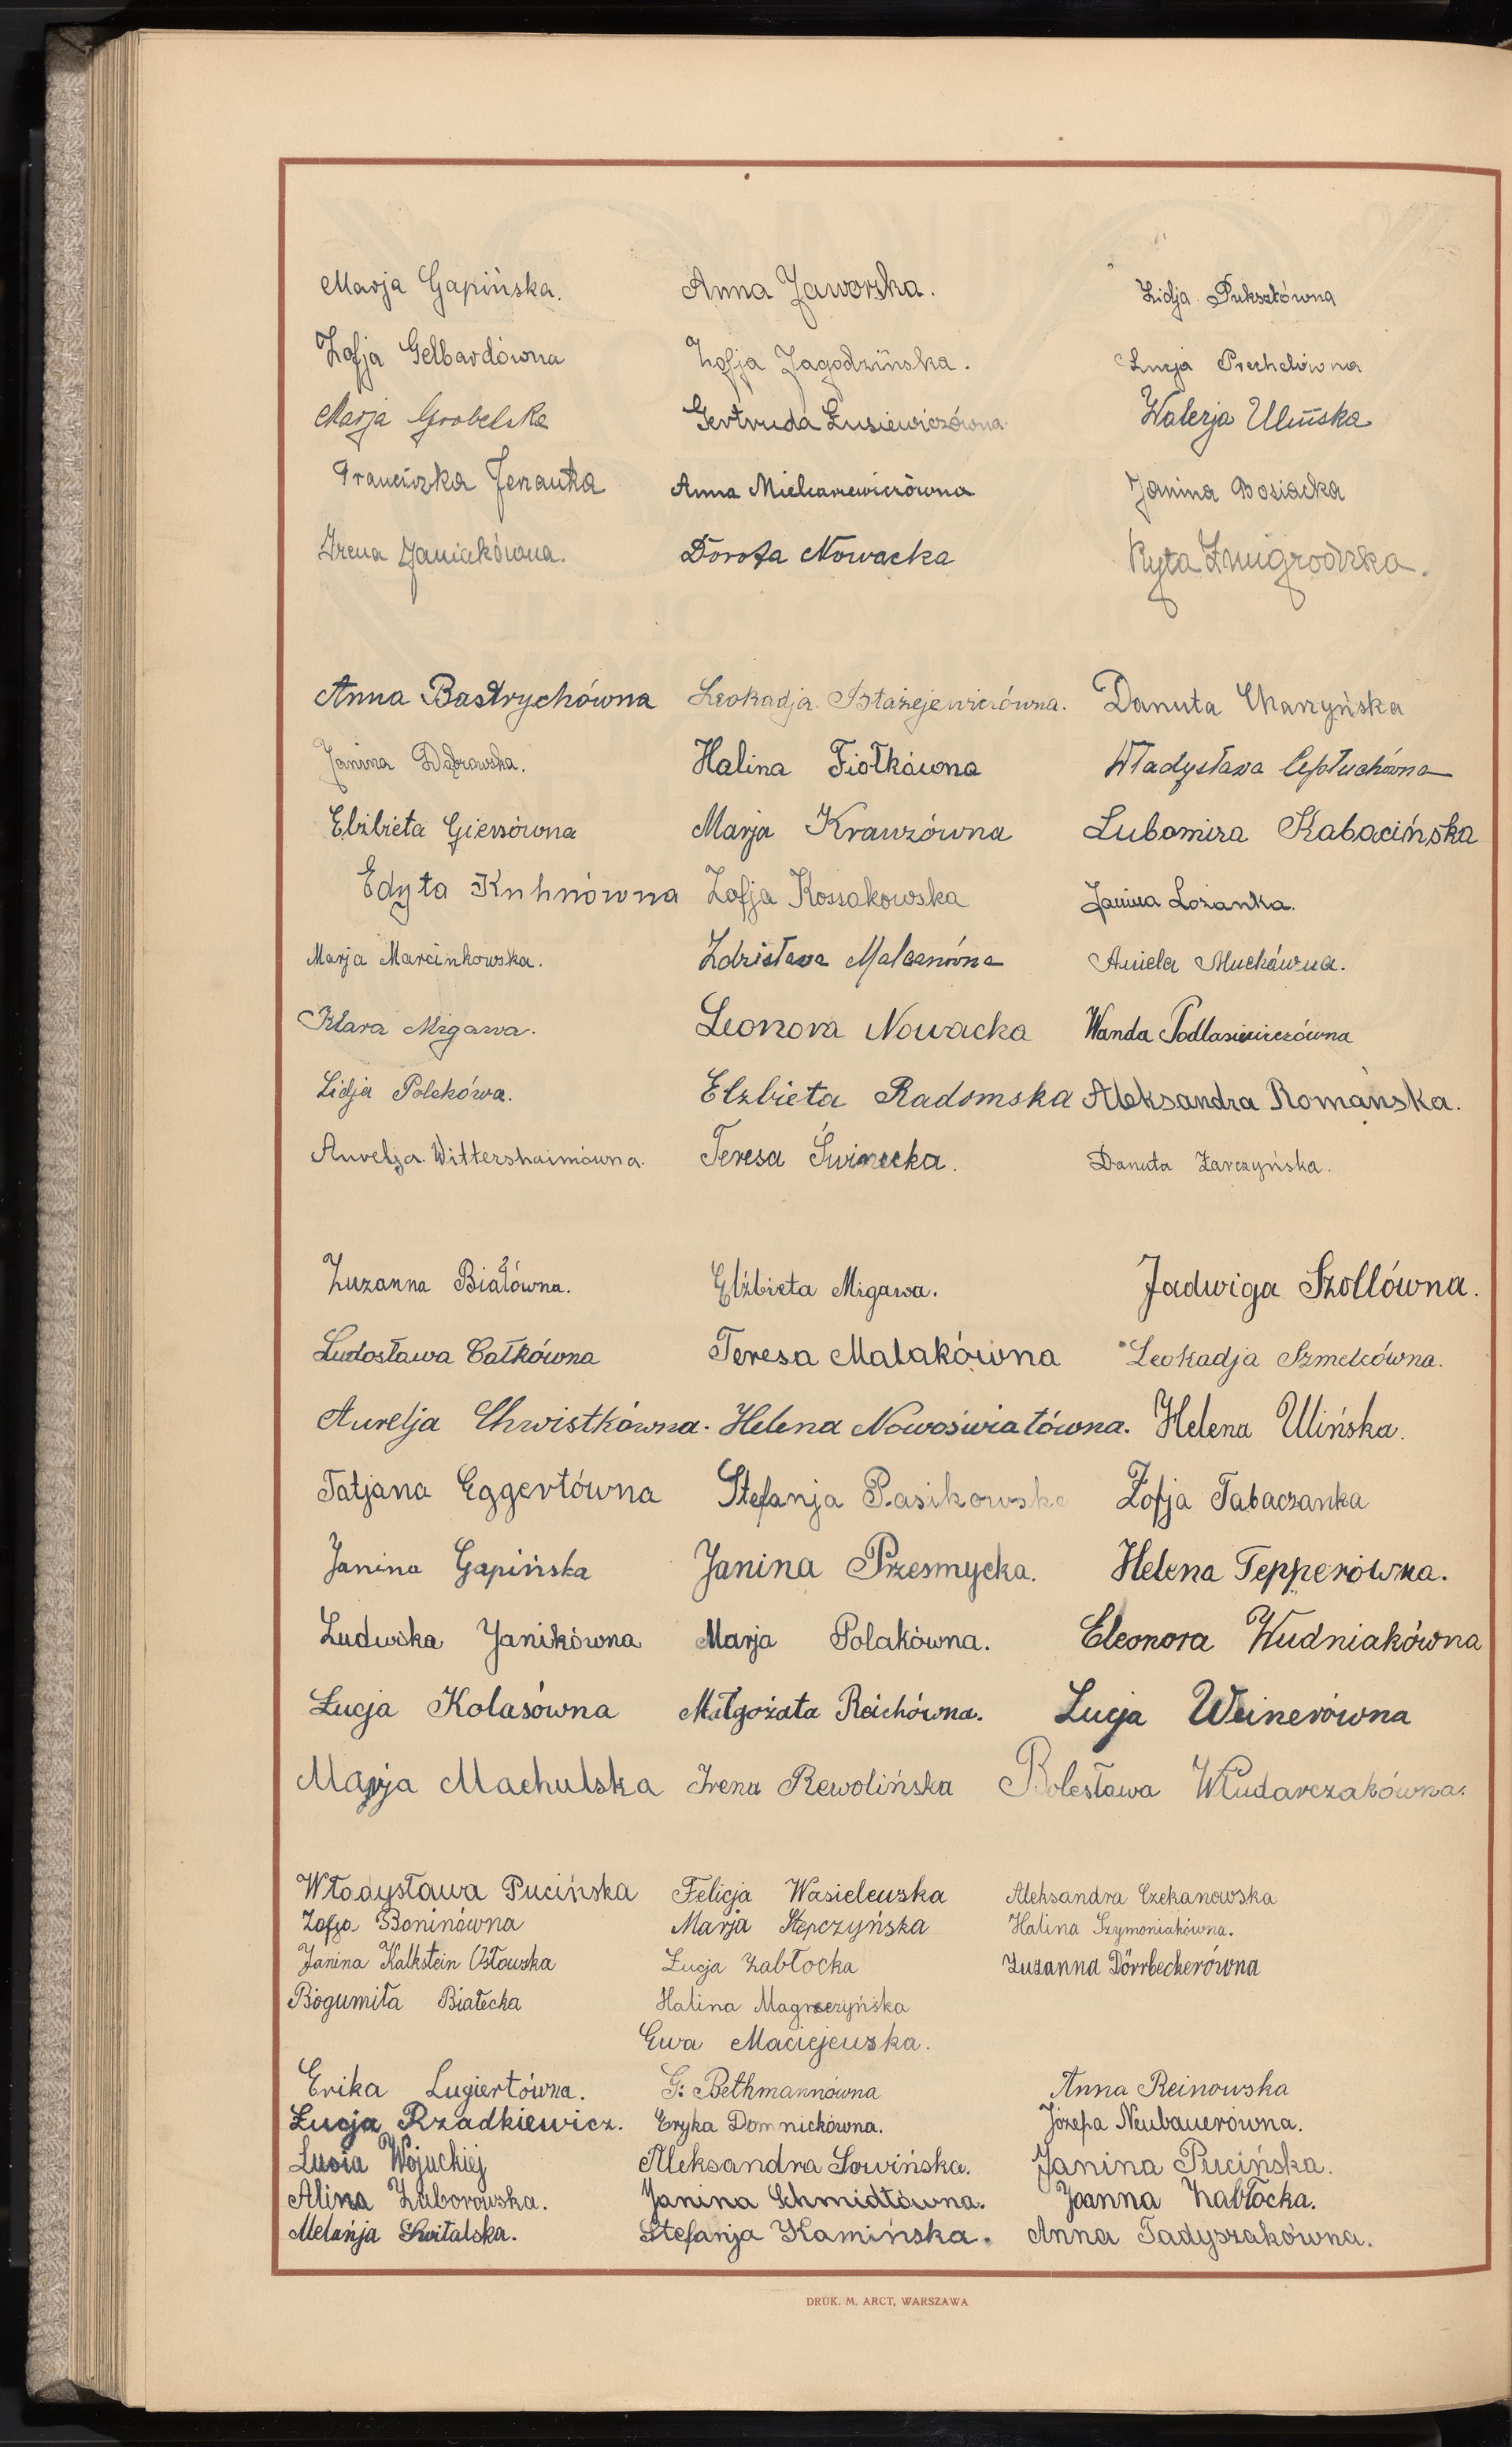 Marja Gapińska. Anna Jaworska. Lidja Puksztówna
Zofja Gelbardówna Zofja Jagodzińska. Łucja Prechelówna
Marja Grobelska Gertruda Łusiewiczówna Walerja Ulińska
Franciszka Jerauka Anna Mielcarewiczówna Janina Bosiacka
Irena Janiakówna. Dorota Nowacka Ryta Żmigrodzka.
Anna Bastrychówna Leokadja Błażejewiczówna. Danuta Charzyńska
Janina Dąbrowska. Halina Fiołkówna Władysława Cepłuchówna
Elżbieta Giersówna Marja Krawzówna Lubomira Kabacińska
Edyta Kuhnówna Zofja Kossakowska Janina Lożanka.
Marja Marcinkowska. Zdzisława Malcanówna Aniela Muchówna.
Klara Migawa. Leonora Nowacka Wanda Podlasiewiczówna
Lidja Polekówa. Elżbieta Radomska Aleksandra Romańska.
Aurelja Wittershaimówna. Teresa Świnecka. Danuta Żarczyńska.
Zuzanna Białówna. Elżbieta Migawa. Jadwiga Szollówna.
Ludosława Całkówna Teresa Malakówna Leokadja Szmelcówna.
Aurelja Chwistkówna. Helena Nowoświatówna. Helena Ulińska.
Tatjana Eggertówna Stefanja Pasikowska Zofja Tabaczanka
Janina Gapińska Janina Przesmycka. Helena Tepperówna.
Ludwika Janikówna Marja Polakówna. Eleonora Wudniakówna
Łucja Kolasówna Małgożata Reichówna. Łucja Weinerówna
Marja Machulska Irena Rewolińska Bolesława Włudarczakówna.
Władysława Pucińska Felicja Wasielewska Aleksandra Czekanowska
Zofja Boninówna Marja Stępczyńska Halina Szymoniakówna.
Janina Kalkstein Osłowska Łucja Zabłocka Zuzanna Dörrbeckerówna
Bogumiła Białecka Halina Magrzeryńska
Ewa Maciejewska.
Erika Lugiertówna. G. Bethmannówna Anna Reinowska
Łucja Rzadkiewicz. Eryka Domnickówna. Józefa Neubauerówna.
Lusia Wojuckiej Aleksandra Sowińska. Janina Pucińska.
Alina Zuborowska. Janina Schmidtówna. Joanna Zabłocka.
Melanja Świtalska. Stefanja Kamińska. Anna Tadyszakówna.
DRUK. M. ARCT, WARSZAWA